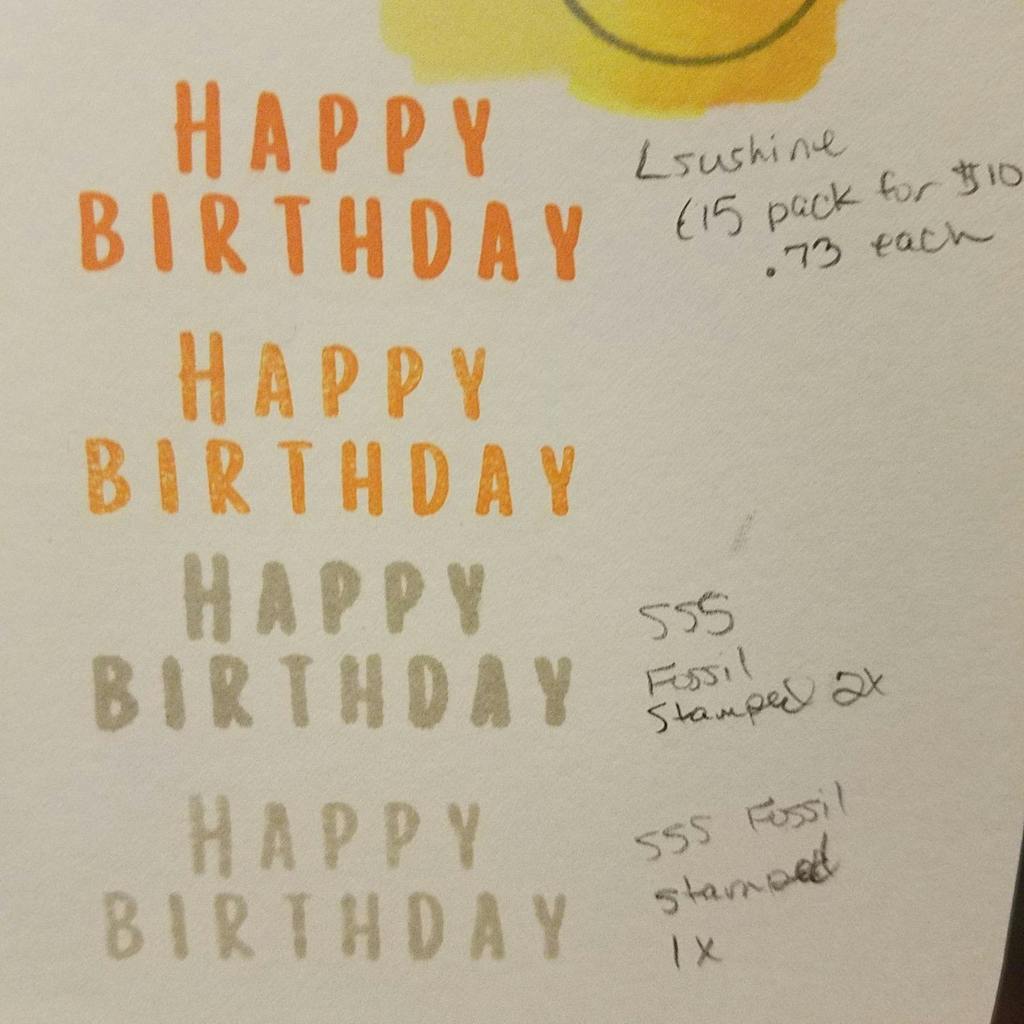 HAPPY
BIRTHDAY
Lsushine
(15 pack for $10
.73 each
HAPPY
BIRTHDAY
HAPPY
BIRTHDAY
SSS
Fossil
Stamped 2x
HAPPY
BIRTHDAY
SSS Fossil
stamped
1x